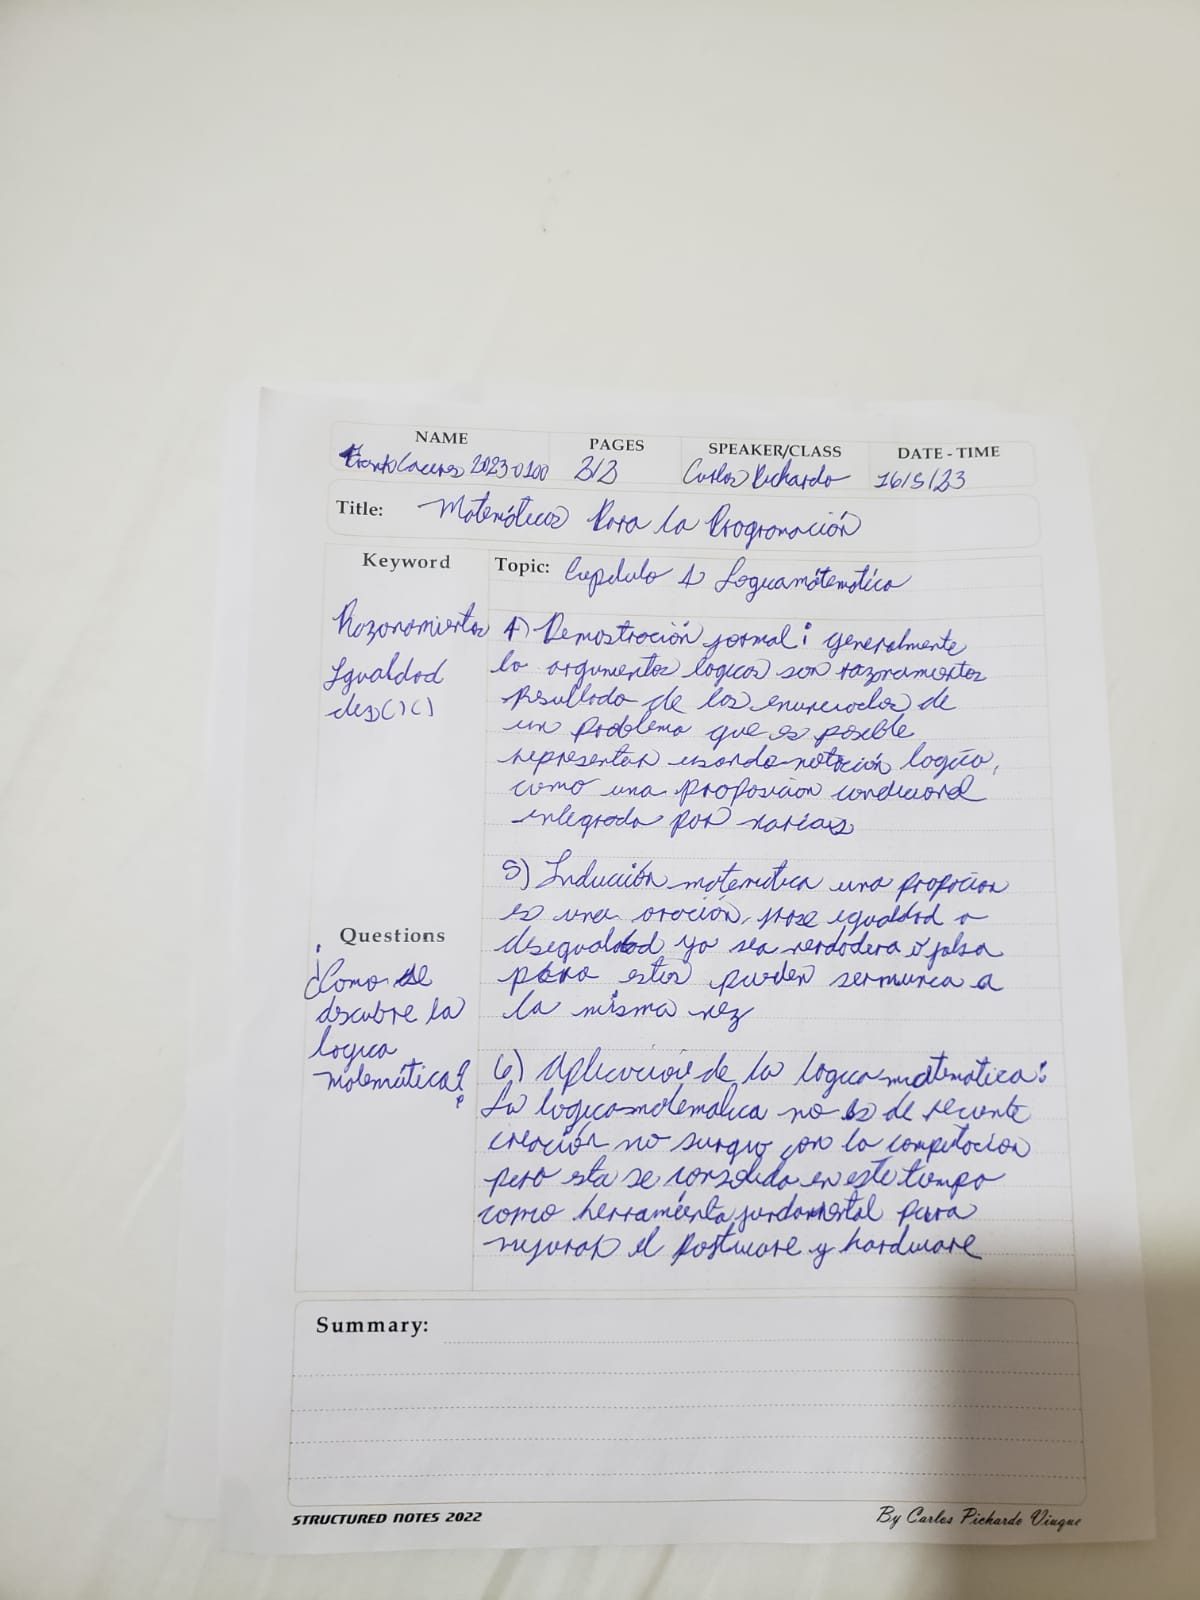 NAME
PAGES
SPEAKER/CLASS
DATE - TIME
2023-0100
Carlos Pichardo
16/5/23
Title: Matemáticas Para la Programación
Keyword
Topic: Capitulo 4 Logica mátemática
Razonamientos
Igualdad
des()()
4) Demostración formal: generalmente
lo argumentos logicos son razonamientos
resultado de los enunciados de
un problema que es posible
representar usando notación logica,
como una proposicion condicional
integrada por varias
5) Inducción matematica una propocion
es una oración, frase igualdad o
desigualdad ya sea verdadera o falsa
pero estas pueden ser nunca a
la misma vez
Questions
¿Como se
descubre la
logica
matemática?
6) Aplicación de la logica matematica:
La logica matematica no es de reciente
creación no surgio con la computacion
pero esta se consolida en este tiempo
como herramienta fundamental para
mejorar el software y hardware
Summary:
STRUCTURED NOTES 2022
By Carlos Pichardo Viuque